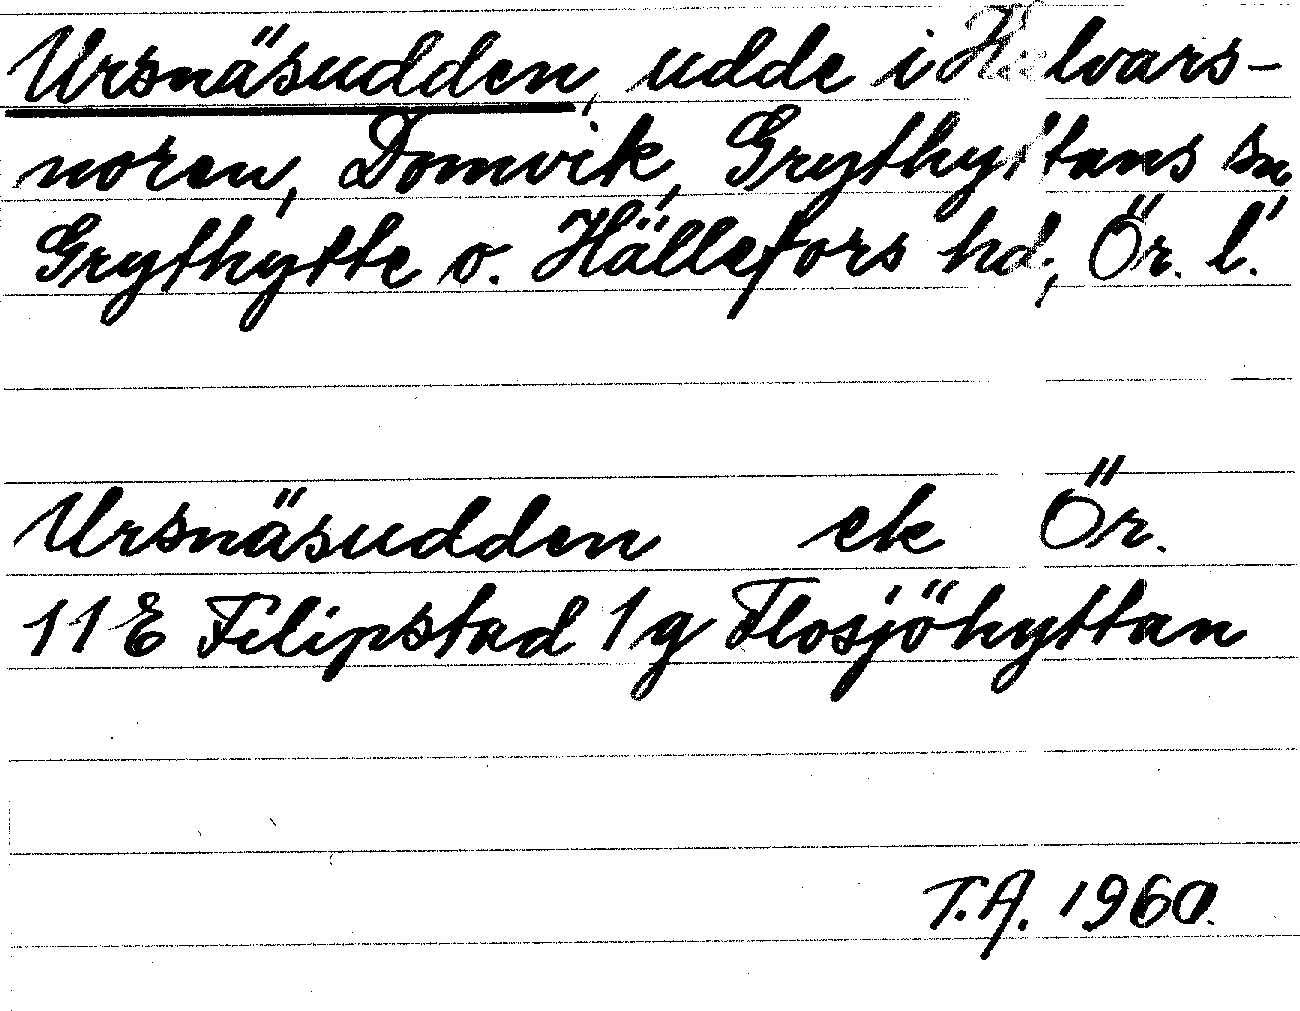 Ursnäsudden, udde i Halvars-
noren, Domvik, Grythyttans sn,
Grythytte o. Hällefors hd, Ör. l.
Ursnäsudden ek Ör.
11E Filipstad 1g Flosjöhyttan
T.A. 1960.